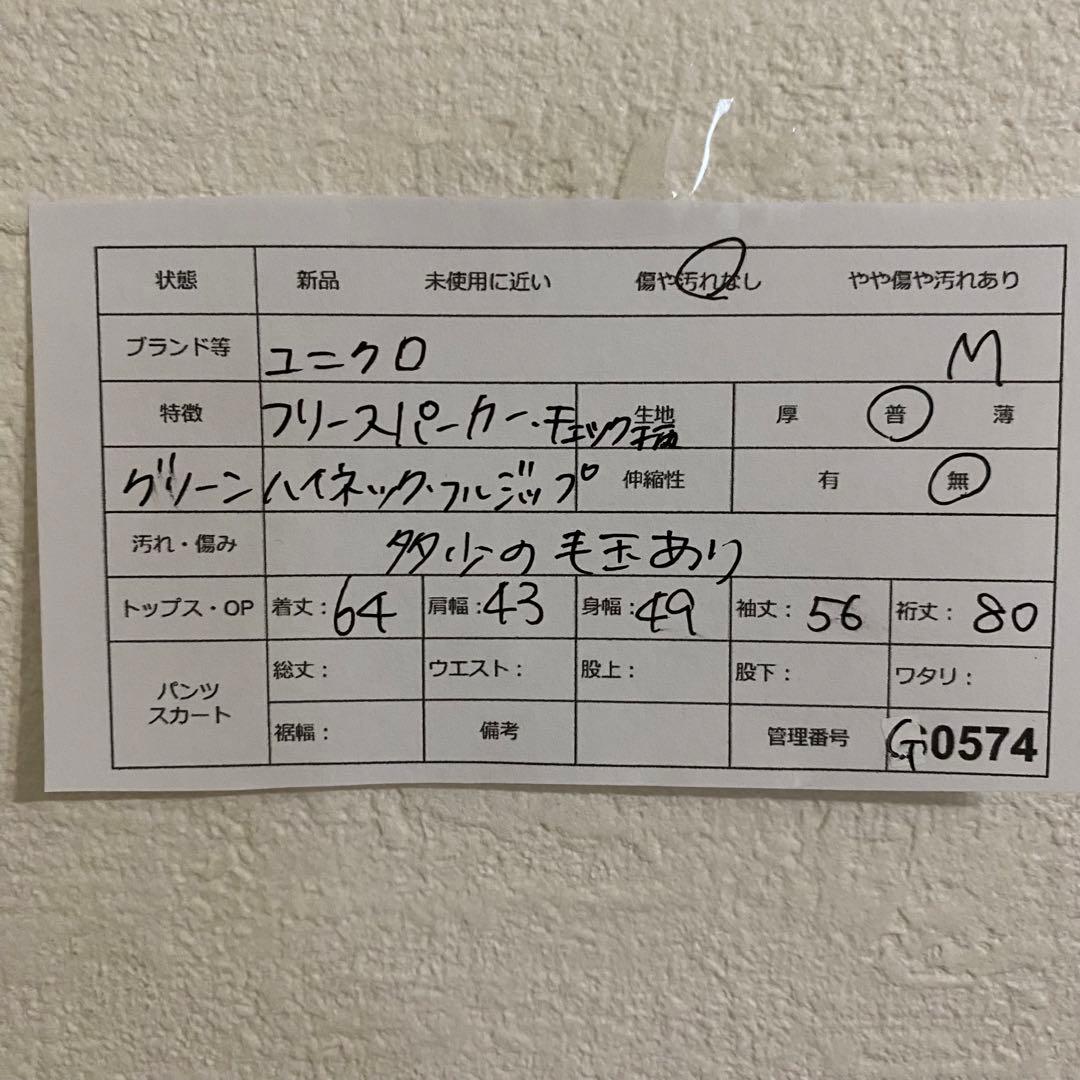 状態 新品 未使用に近い 傷や汚れなし やや傷や汚れあり
ブランド等 ユニクロ M
特徴 フリースパーカー・チェック柄 生地 厚 普 薄
グリーン ハイネック・フルジップ 伸縮性 有 無
汚れ・傷み 多少の毛玉あり
トップス・OP 着丈：64 肩幅：43 身幅：49 袖丈：56 裄丈：80
パンツ スカート 総丈： ウエスト： 股上： 股下： ワタリ：
裾幅： 備考 管理番号 G0574